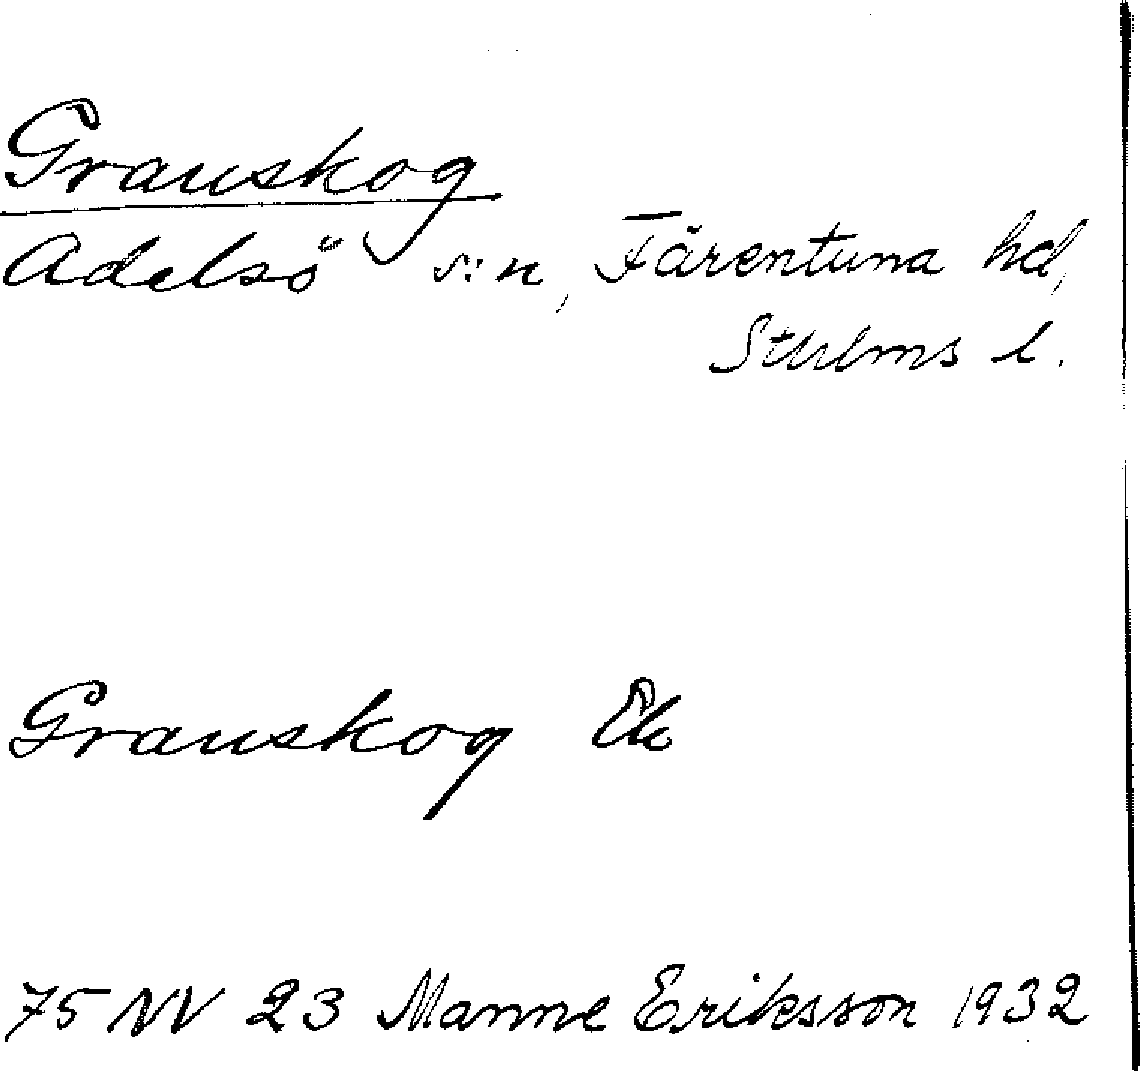 Granskog
Adelsö s:n, Färentuna hd,
Sthlms l.
Granskog Ek
75 NV 23 Manne Eriksson 1932